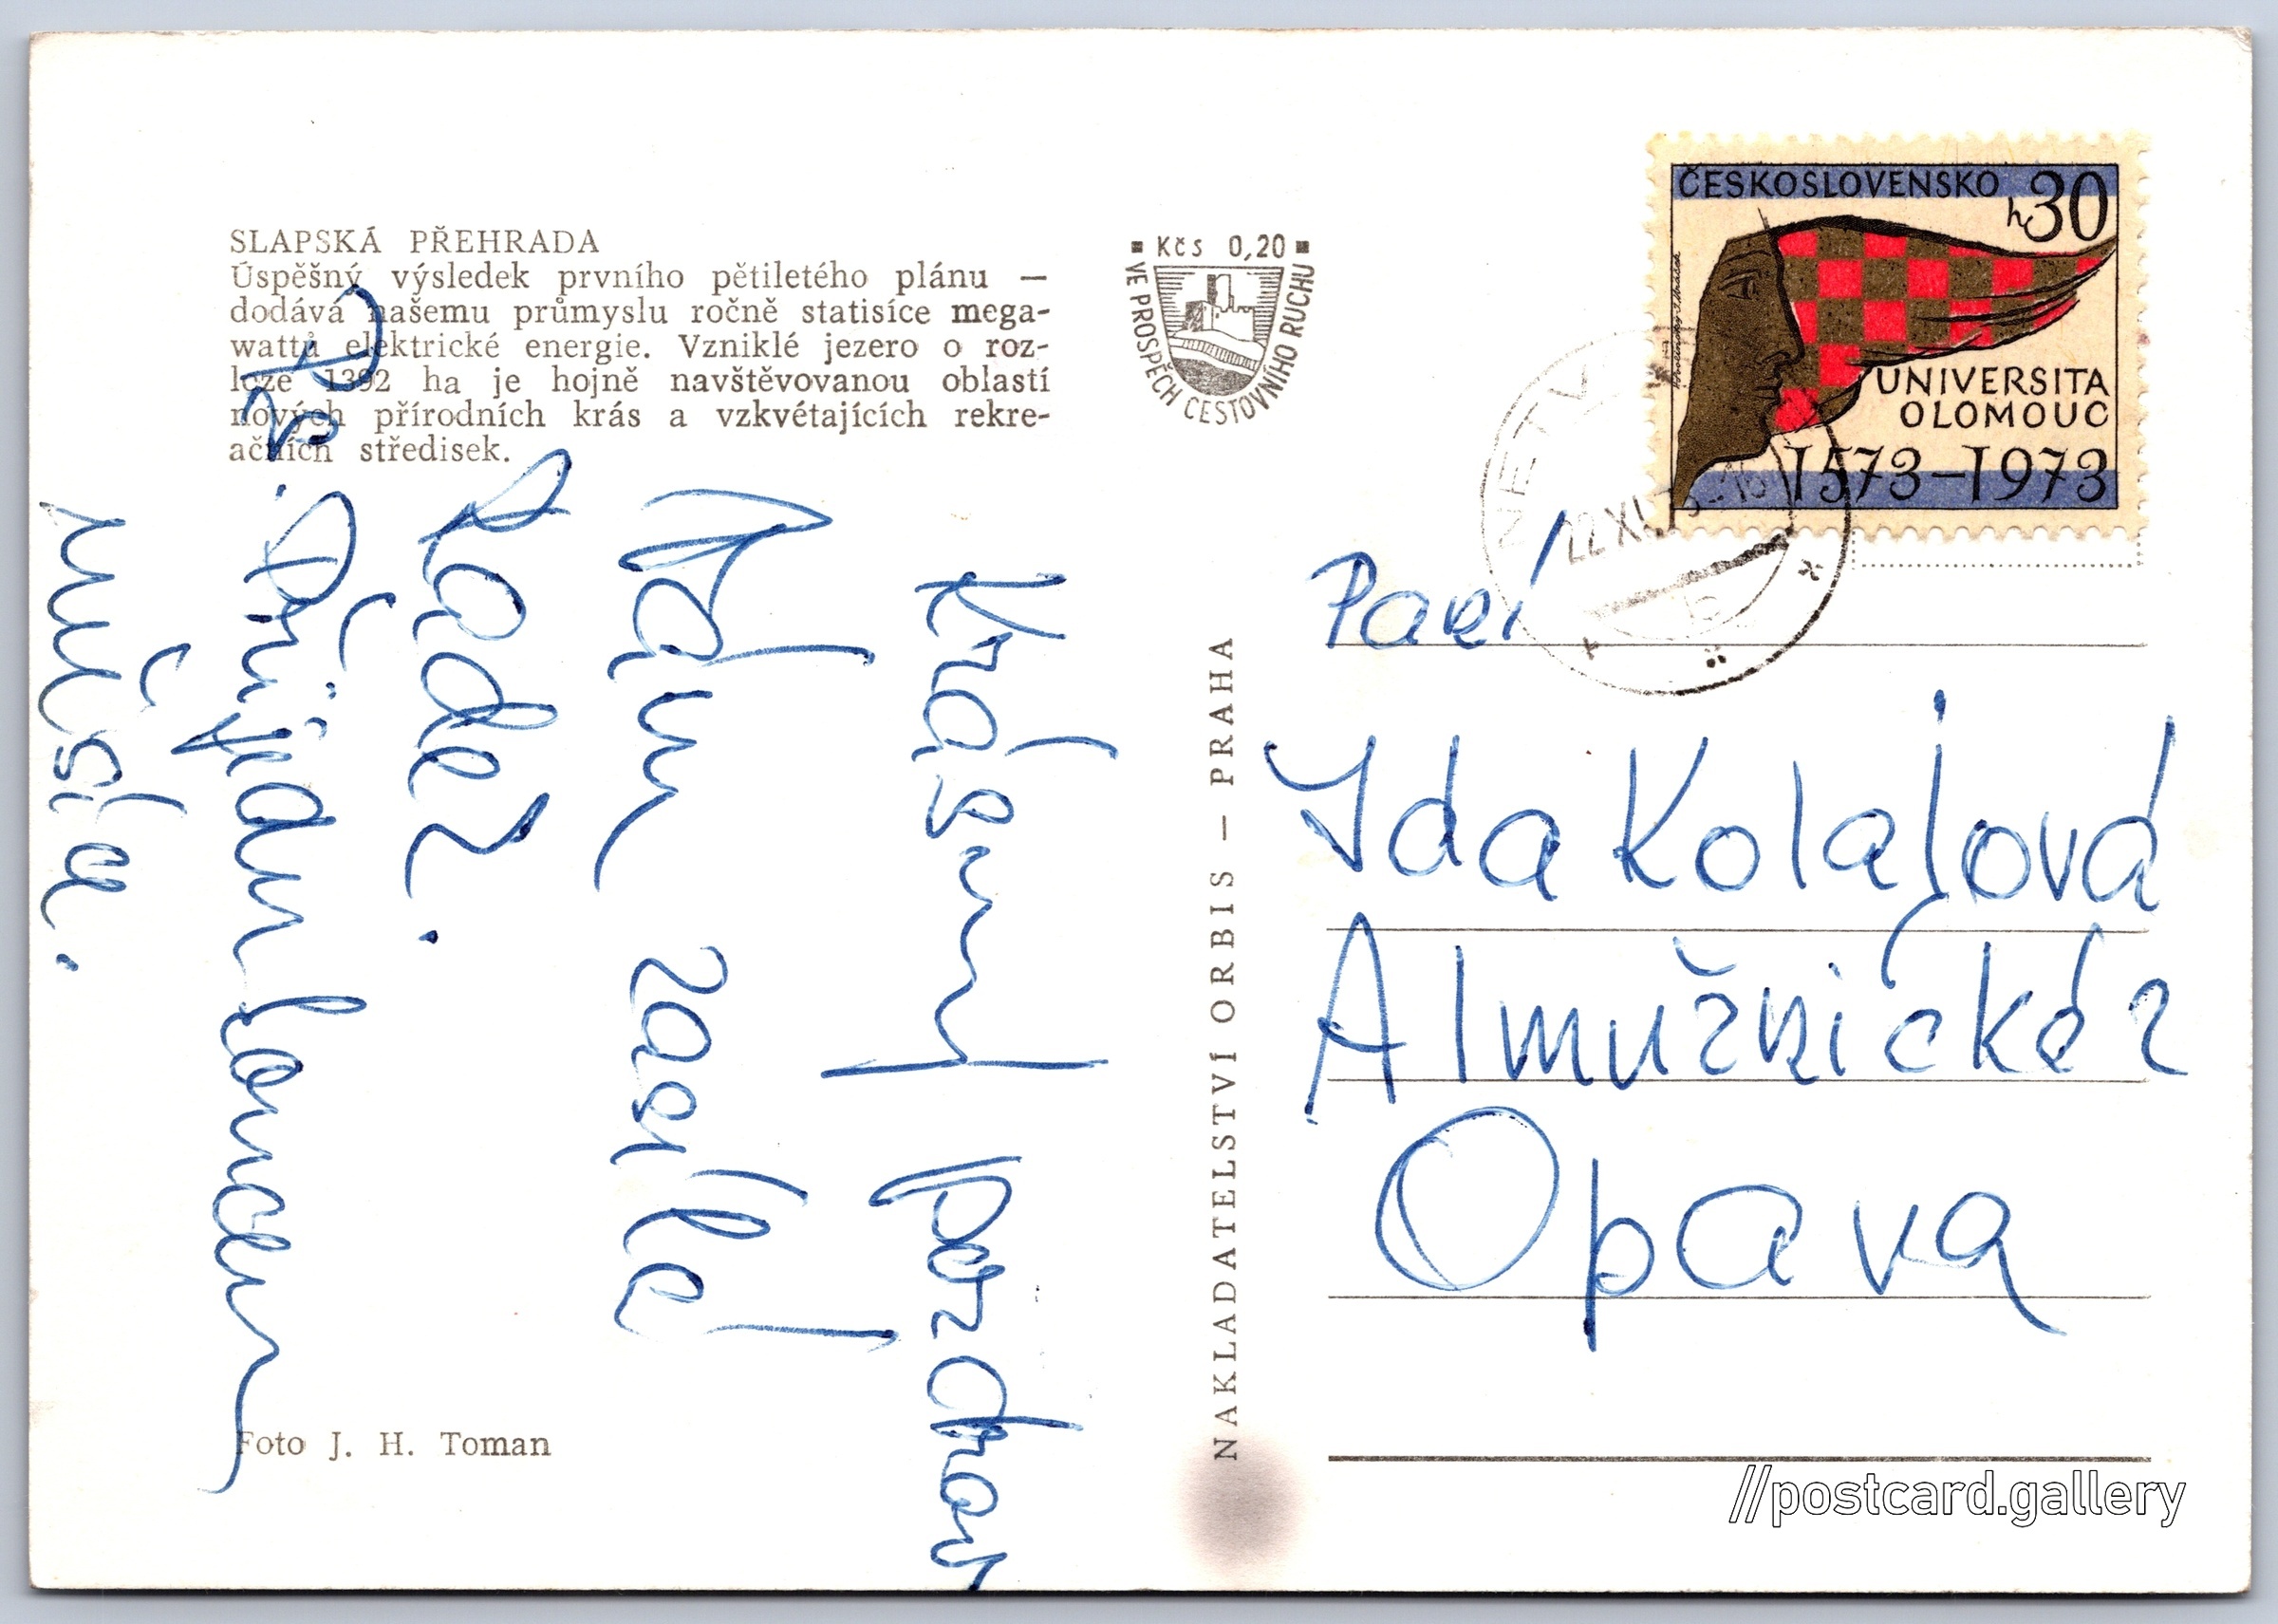 SLAPSKÁ PŘEHRADA
Úspěšný výsledek prvního pětiletého plánu —
dodává našemu průmyslu ročně statisíce mega-
wattů elektrické energie. Vzniklé jezero o roz-
loze 1392 ha je hojně navštěvovanou oblastí
nových přírodních krás a vzkvétajících rekre-
ačních středisek.
Foto J. H. Toman
Krásný pozdrav
Vám zasílá
Radek.
P.S. Přijedu koncem
měsíce.
Kčs 0,20
VE PROSPĚCH CESTOVNÍHO RUCHU
NAKLADATELSTVÍ ORBIS — PRAHA
ČESKOSLOVENSKO h 30
UNIVERSITA
OLOMOUC
1573–1973
22 XI.
Paní
Ida Kolářová
Almužnická 2
Opava
//postcard.gallery